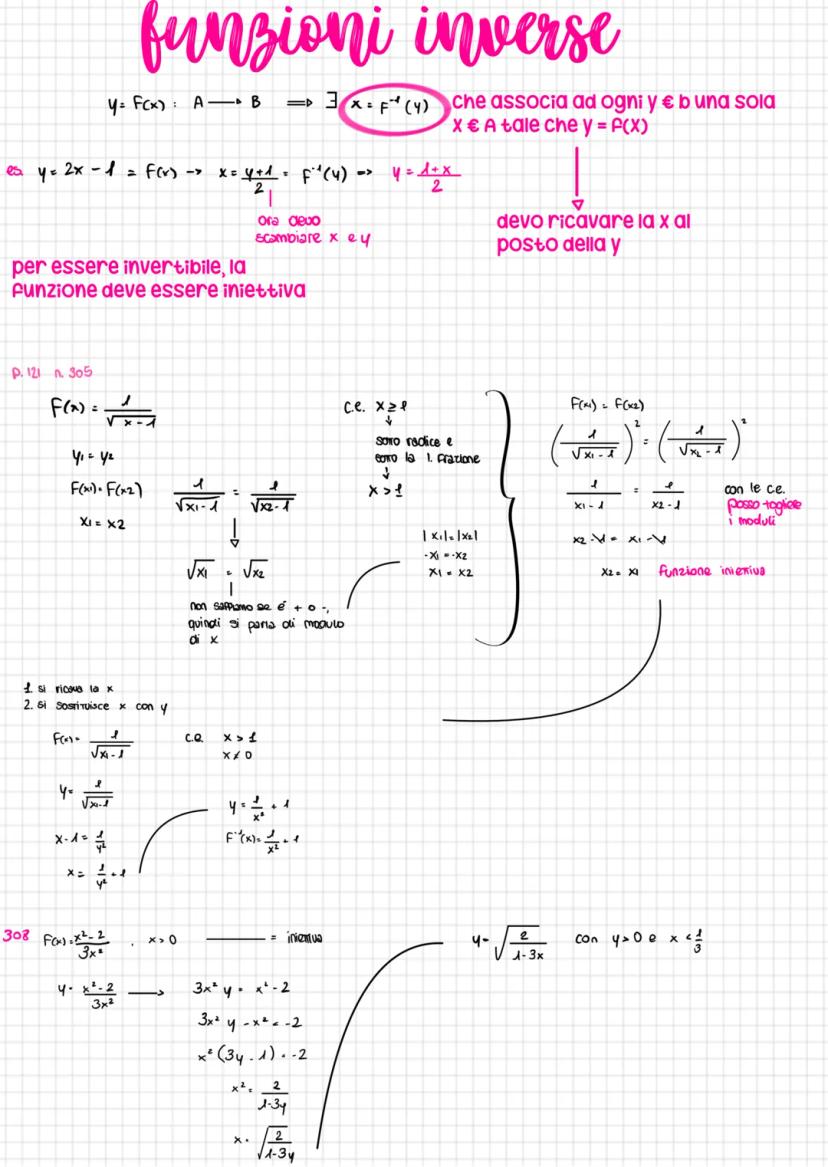 funzioni inverse
y = F(x) : A → B ⇒ ∃ x = F⁻¹(y) che associa ad ogni y € b una sola
x € A tale che y = f(x)
es y = 2x - 1 = F(x) -> x = y+1/2 = F⁻¹(y) => y = 1+x/2
ora devo
scambiare x e y
devo ricavare la x al
posto della y
per essere invertibile, la
funzione deve essere iniettiva
p. 121 n. 305
F(x) = 1/√x-1
y1 = y2
F(x1) = F(x2)
x1 = x2
1/√x1-1 = 1/√x2-1
√x1 = √x2
non sappiamo se è + o -,
quindi si parla di modulo
di x
c.e. x ≥ 1
↓
sotto radice e
sotto la l. frazione
↓
x > 1
|x1| = |x2|
-x1 = -x2
x1 = x2
F(x1) = F(x2)
(1/√x1-1)² = (1/√x2-1)²
1/x1-1 = 1/x2-1
con le c.e.
posso togliere
i moduli
x2 - 1 = x1 - 1
x2 = x1 funzione iniettiva
1. si ricava la x
2. si sostituisce x con y
F(x) = 1/√x1-1 c.e. x > 1
x ≠ 0
y = 1/√x1-1
x - 1 = 1/y²
x = 1/y² + 1
y = 1/x² + 1
F⁻¹(x) = 1/x² + 1
308 F(x) = x²-2/3x² , x > 0 = iniettiva
y = x²-2/3x² → 3x² y = x² - 2
3x² y - x² = -2
x² (3y - 1) = -2
x² = 2/1-3y
x = √2/1-3y
y = √2/1-3x con y > 0 e x < 1/3